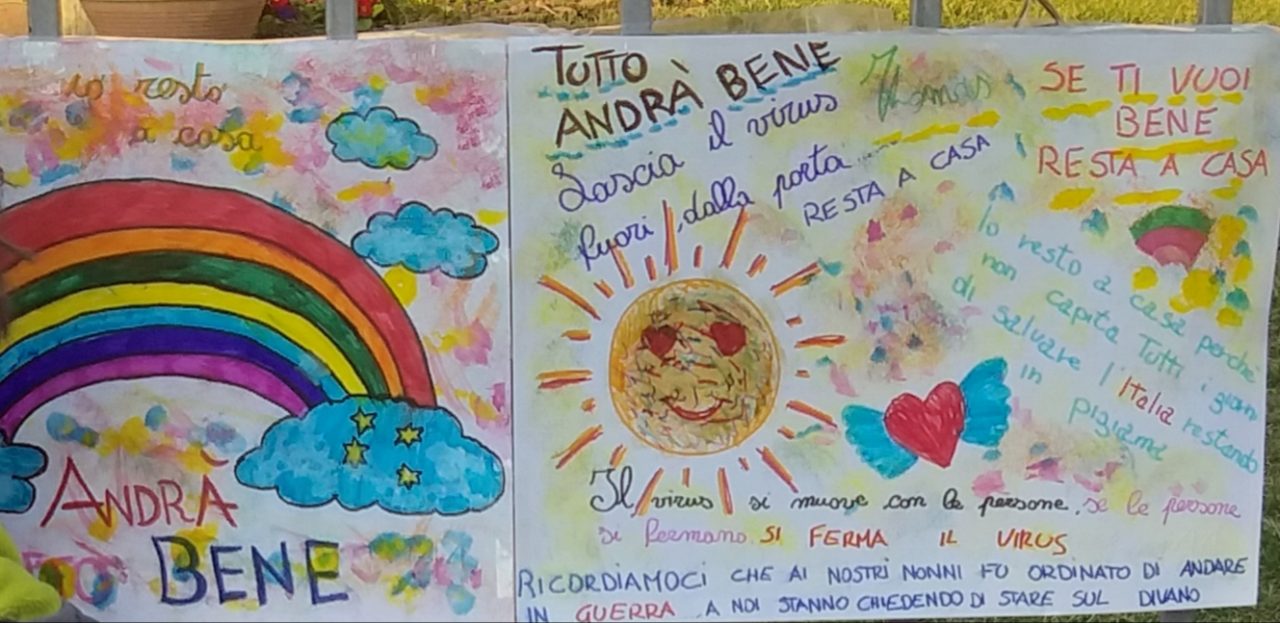 io resto
a casa
ANDRÀ
BENE
TUTTO
ANDRÀ BENE
Lascia il virus
fuori dalla porta
RESTA A CASA
Thomas
SE TI VUOI
BENE
RESTA A CASA
Io resto a casa perché
non capita Tutti i giorni
di salvare l'Italia restando
in pigiama
Il virus si muove con le persone, se le persone
si fermano SI FERMA IL VIRUS
RICORDIAMOCI CHE AI NOSTRI NONNI FU ORDINATO DI ANDARE
IN GUERRA A NOI STANNO CHIEDENDO DI STARE SUL DIVANO